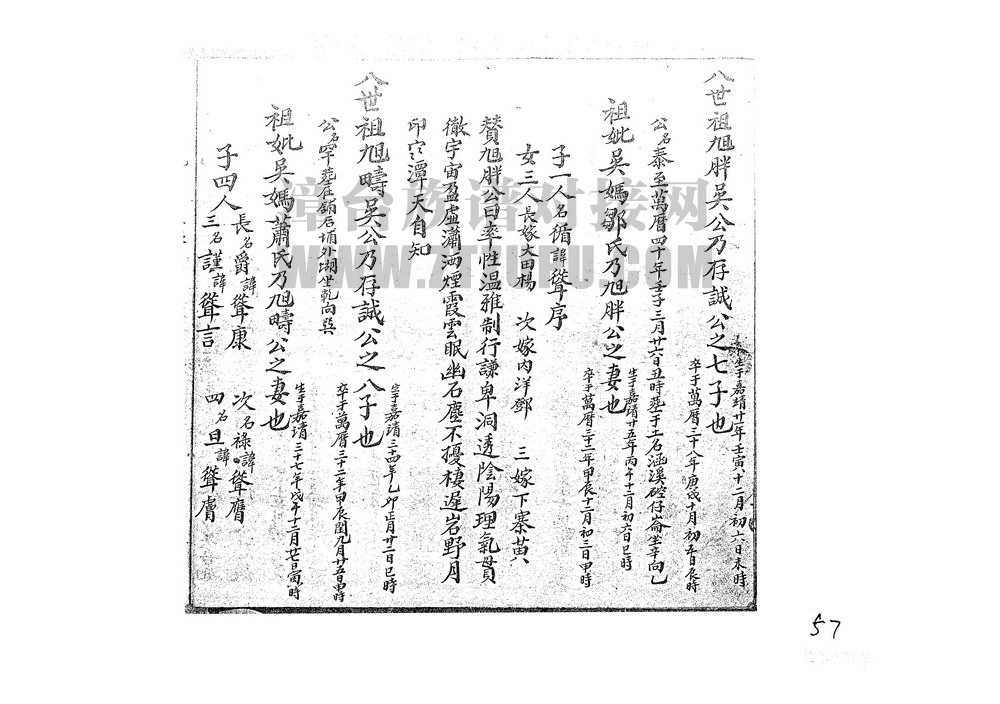 八世祖旭胖吳公乃存誠公之七子也
生于嘉靖廿一年壬寅十二月初六日未時
卒于萬曆三十八年庚戌十月初五日辰時
公名泰至萬曆四十年壬子三月廿六日丑時塟于土名涵溪硿仔崙坐辛向乙
祖妣吳媽鄒氏乃旭胖公之妻也
生于嘉靖廿五年丙午十二月初六日巳時
卒于萬曆三十二年甲辰十二月初三日甲時
子一人名循諱聳序
女三人長嫁大田楊 次嫁內洋鄧 三嫁下寨黃
贊旭胖公曰率性温雅制行謙卑洞透陰陽理氣貫
徹宇宙盈虛瀟洒煙霞雲眠幽石塵不擾棲遲岩野月
印空潭天自知
八世祖旭疇吳公乃存誠公之八子也
生于嘉靖三十四年乙卯正月廿二日巳時
卒于萬曆三十二年甲辰閏九月廿五日甲時
公名罕塟在鋪后埔外坳坐乾向巽
祖妣吳媽蕭氏乃旭疇公之妻也
生于嘉靖三十七年戊午十二月廿日寅時
子四人
長名爵諱聳康 次名祿諱聳鷹
三名謹諱聳言 四名旦諱聳膚
漳台族谱对接网
WWW.ZTZUPU.COM
57